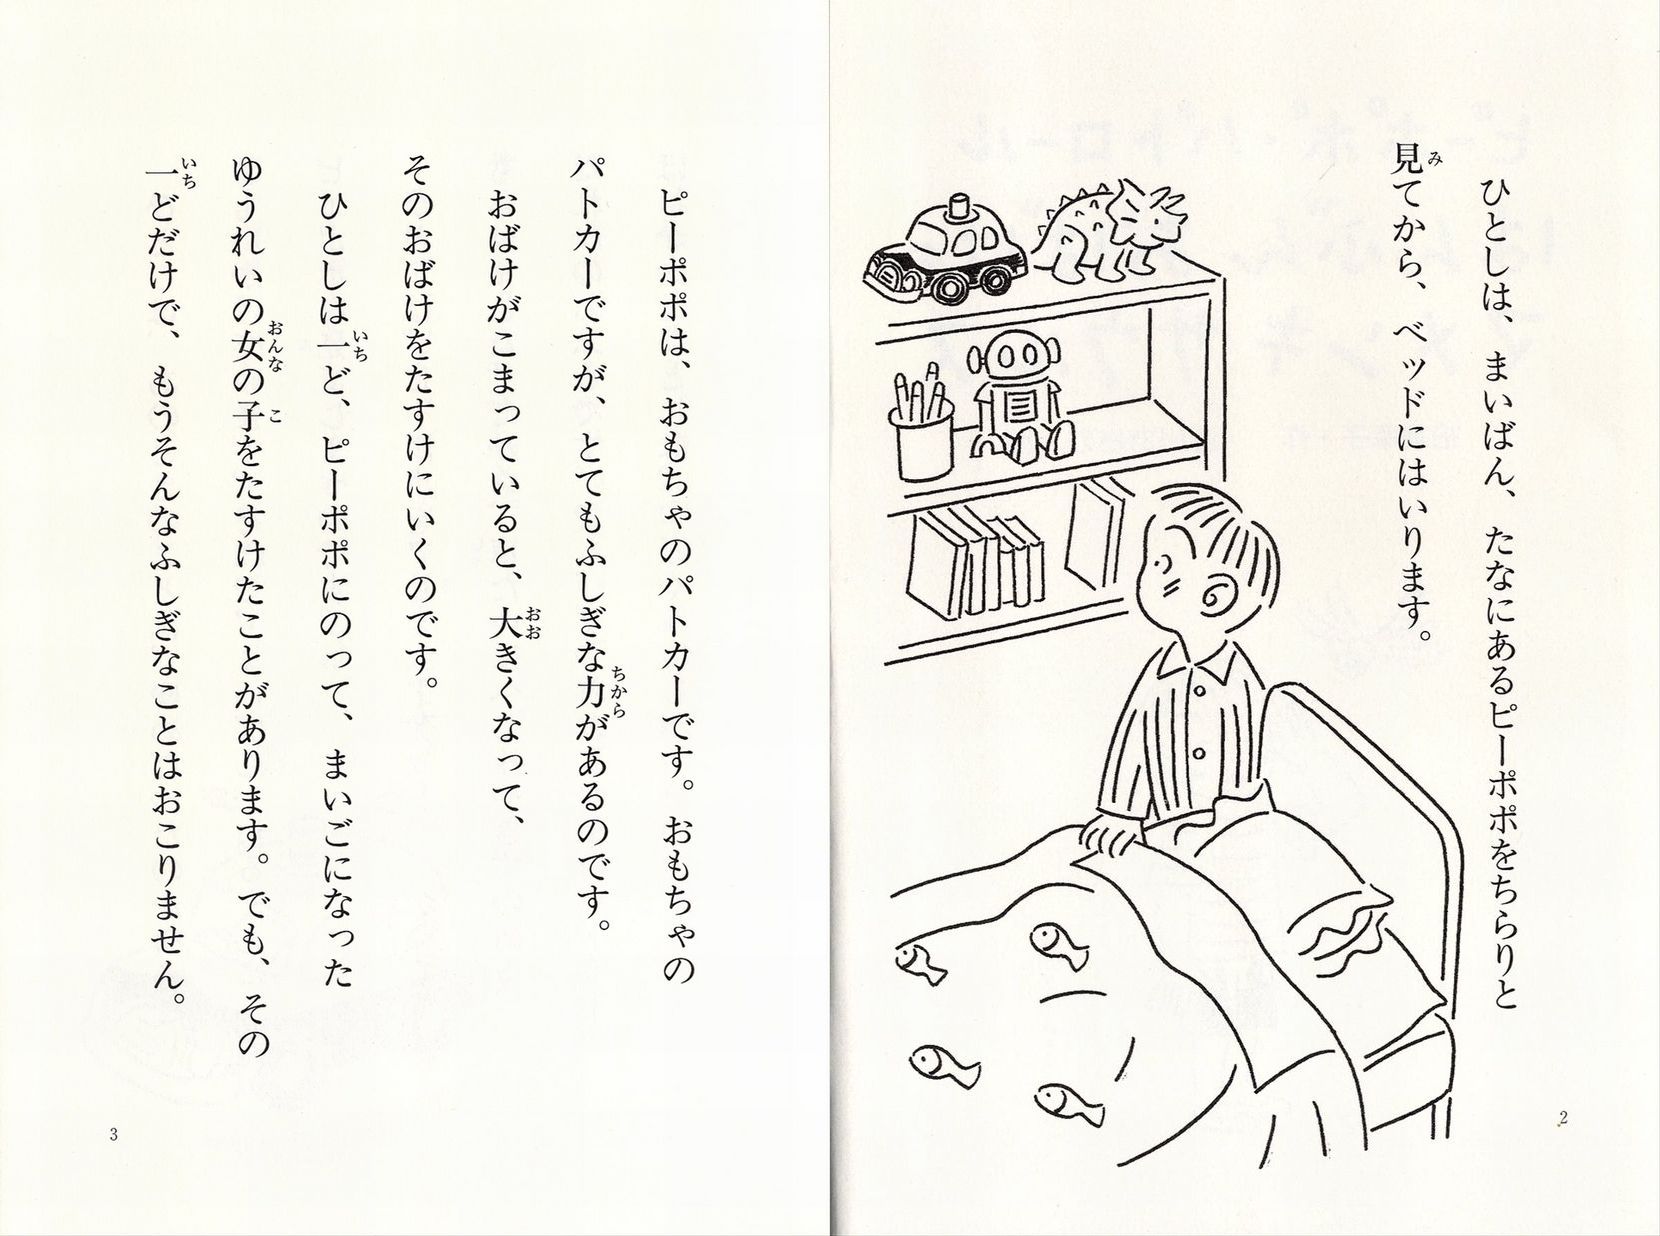 ひとしは、まいばん、たなにあるピーポポをちらりと
見てから、ベッドにはいります。
み
2
ピーポポは、おもちゃのパトカーです。おもちゃの
パトカーですが、とてもふしぎな力があるのです。
ちから
おばけがこまっていると、大きくなって、
おお
そのおばけをたすけにいくのです。
ひとしは一ど、ピーポポにのって、まいごになった
いち
ゆうれいの女の子をたすけたことがあります。でも、その
おんな
こ
一どだけで、もうそんなふしぎなことはおこりません。
いち
3